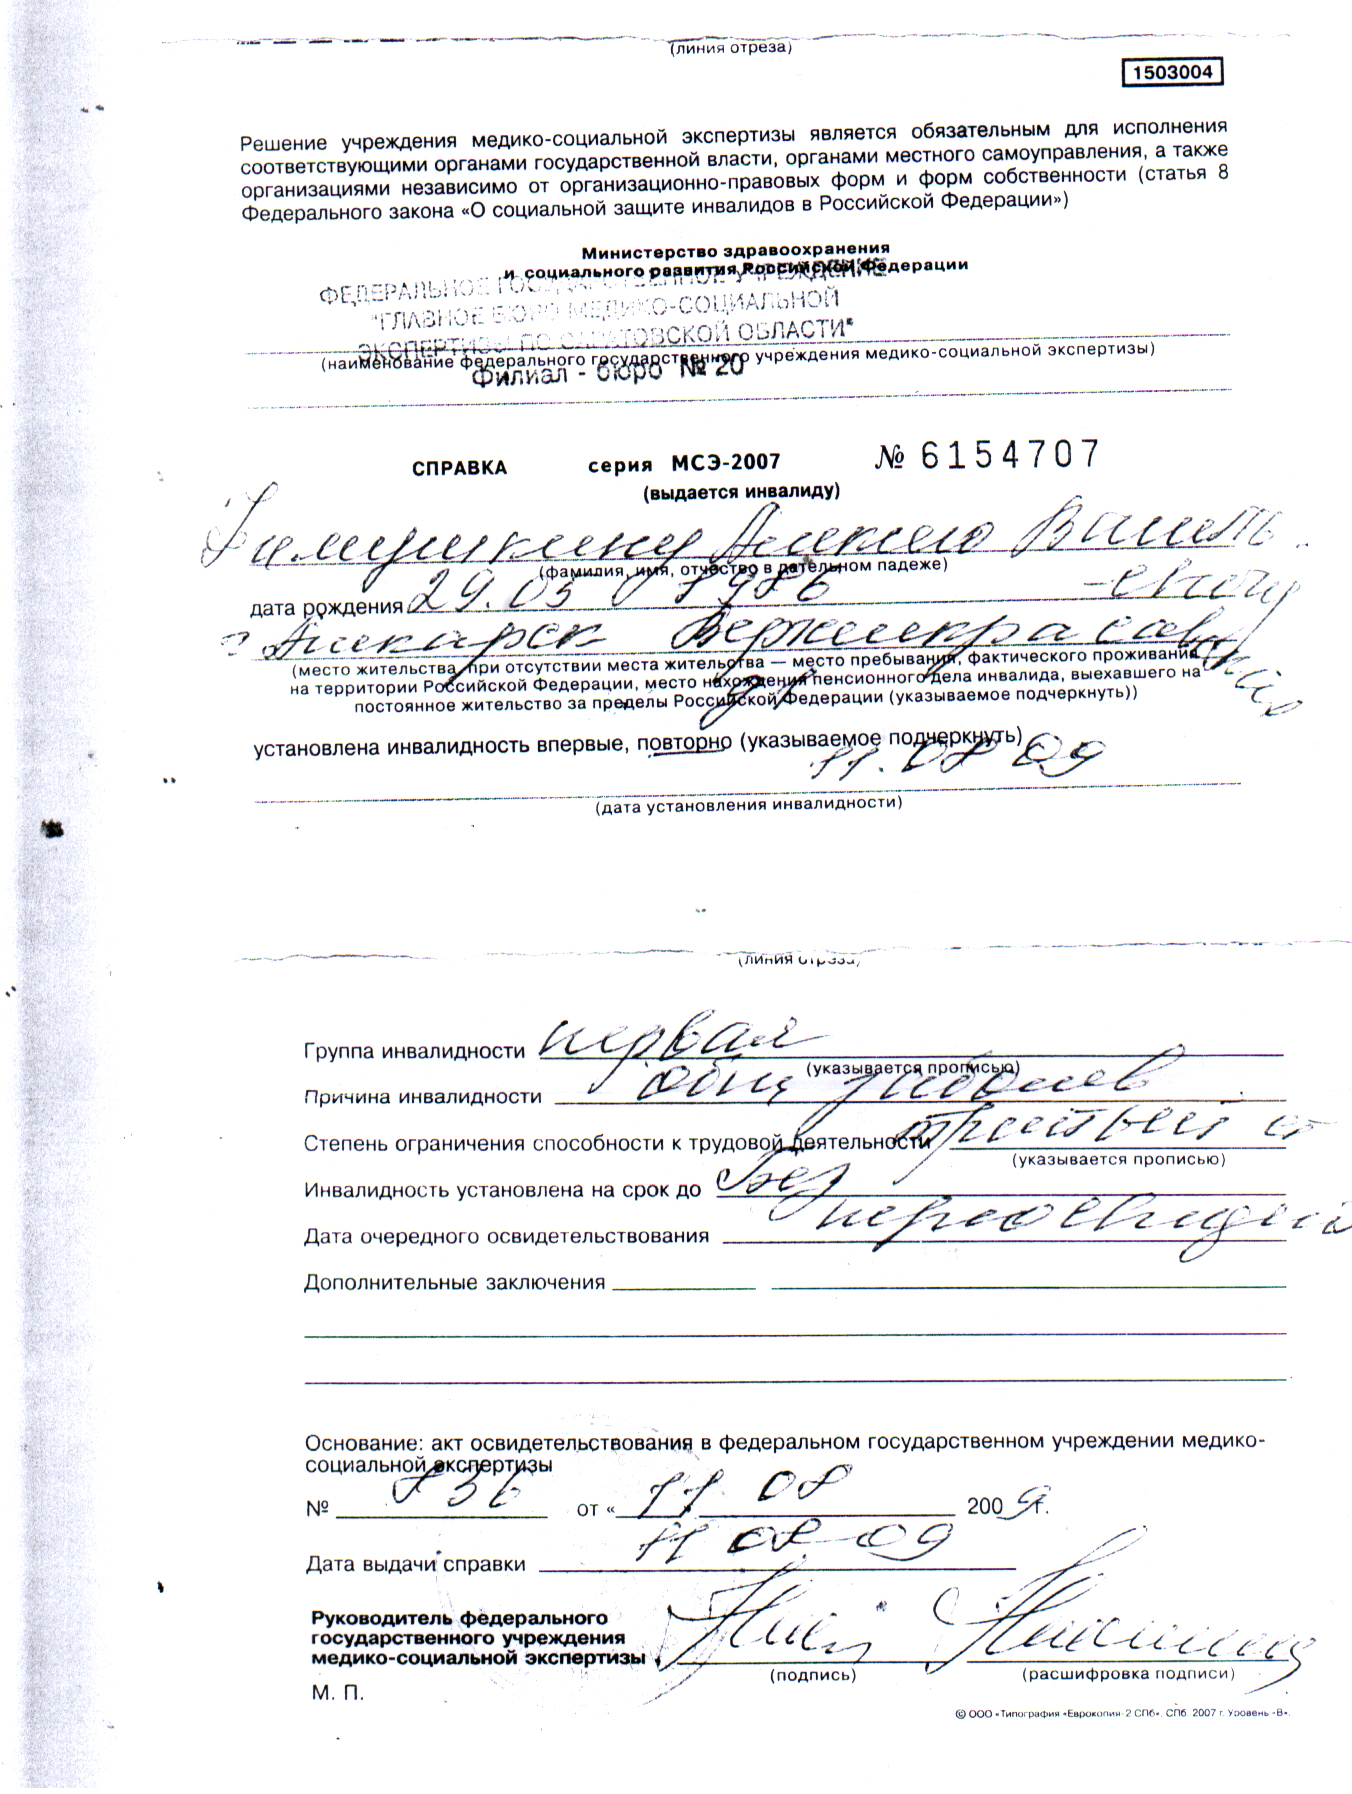 (линия отреза)
1503004
Решение учреждения медико-социальной экспертизы является обязательным для исполнения
соответствующими органами государственной власти, органами местного самоуправления, а также
организациями независимо от организационно-правовых форм и форм собственности (статья 8
Федерального закона «О социальной защите инвалидов в Российской Федерации»)
Министерство здравоохранения
и социального развития Российской Федерации
ФЕДЕРАЛЬНОЕ ГОСУДАРСТВЕННОЕ УЧРЕЖДЕНИЕ
"ГЛАВНОЕ БЮРО МЕДИКО-СОЦИАЛЬНОЙ
ЭКСПЕРТИЗЫ ПО САРАТОВСКОЙ ОБЛАСТИ"
(наименование федерального государственного учреждения медико-социальной экспертизы)
Филиал - бюро № 20
СПРАВКА серия МСЭ-2007 № 6154707
(выдается инвалиду)
Алексею
(фамилия, имя, отчество в дательном падеже)
дата рождения 29.05 1986
г Аткарск
(место жительства, при отсутствии места жительства — место пребывания, фактического проживания
на территории Российской Федерации, место нахождения пенсионного дела инвалида, выехавшего на
постоянное жительство за пределы Российской Федерации (указываемое подчеркнуть))
установлена инвалидность впервые, повторно (указываемое подчеркнуть)
11.08 09
(дата установления инвалидности)
(линия отреза)
Группа инвалидности первая
(указывается прописью)
Причина инвалидности общ заболев
Степень ограничения способности к трудовой деятельности третья
(указывается прописью)
Инвалидность установлена на срок до Без
Дата очередного освидетельствования
Дополнительные заключения
Основание: акт освидетельствования в федеральном государственном учреждении медико-
социальной экспертизы
№ 836 от « 11 08 2009 г.
Дата выдачи справки 11 08 09
Руководитель федерального
государственного учреждения
медико-социальной экспертизы
(подпись) (расшифровка подписи)
М. П.
© ООО «Типография «Еврокопия-2 СПб». СПб. 2007 г. Уровень «В».